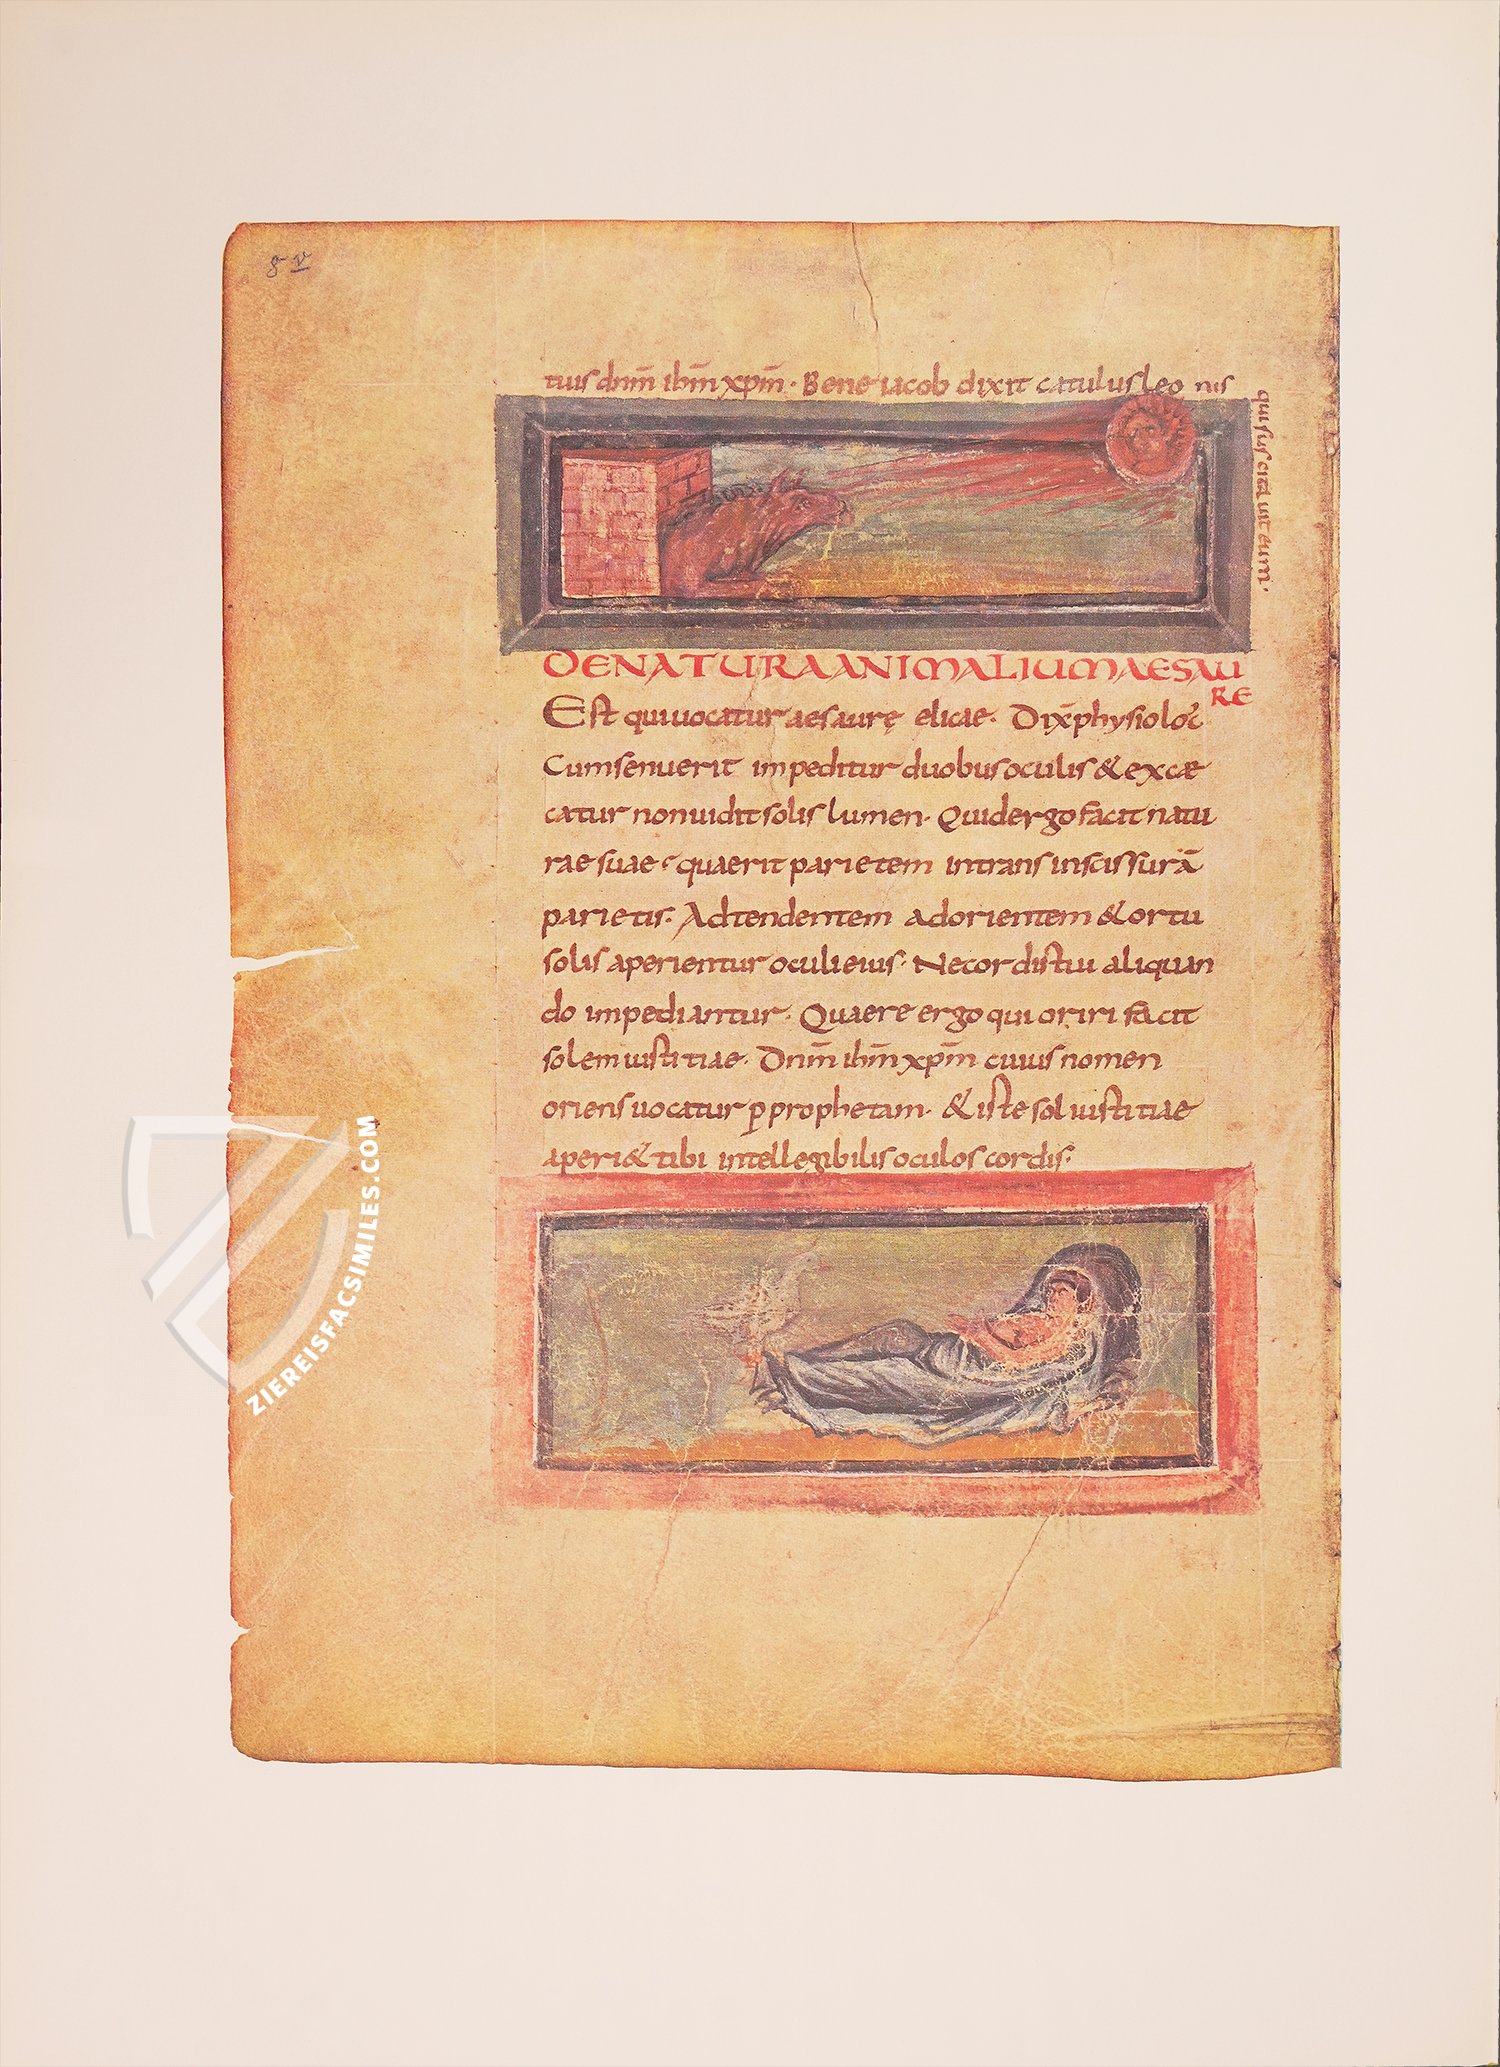 8 v
tuis dnm̄ ihm̄ xpm̄· Bene iacob dixit catulus leo nis
qui suscitavit eum·
DE NATURA ANIMALIUM AESAU
RE
Est qui uocatur aesaurę elicae· Dix̄ physiolo
Cum senuerit impeditur duobus oculis & excae
catur non uidit solis lumen· Quid ergo facit natu
rae suae· quaerit parietem intrans in scissurā
parietis· Adtendentem ad orientem & ortu
solis aperientur oculi eius· Ne cor distui aliquan
do impediantur· Quaere ergo qui oriri facit
solem iustitiae· Dnm̄ ihm̄ xpm̄ cuius nomen
oriens uocatur p̱ prophetam· & iste sol iustitiae
aperi& tibi intellegibilis oculos cordis·
ZIEREISFACSIMILES.COM